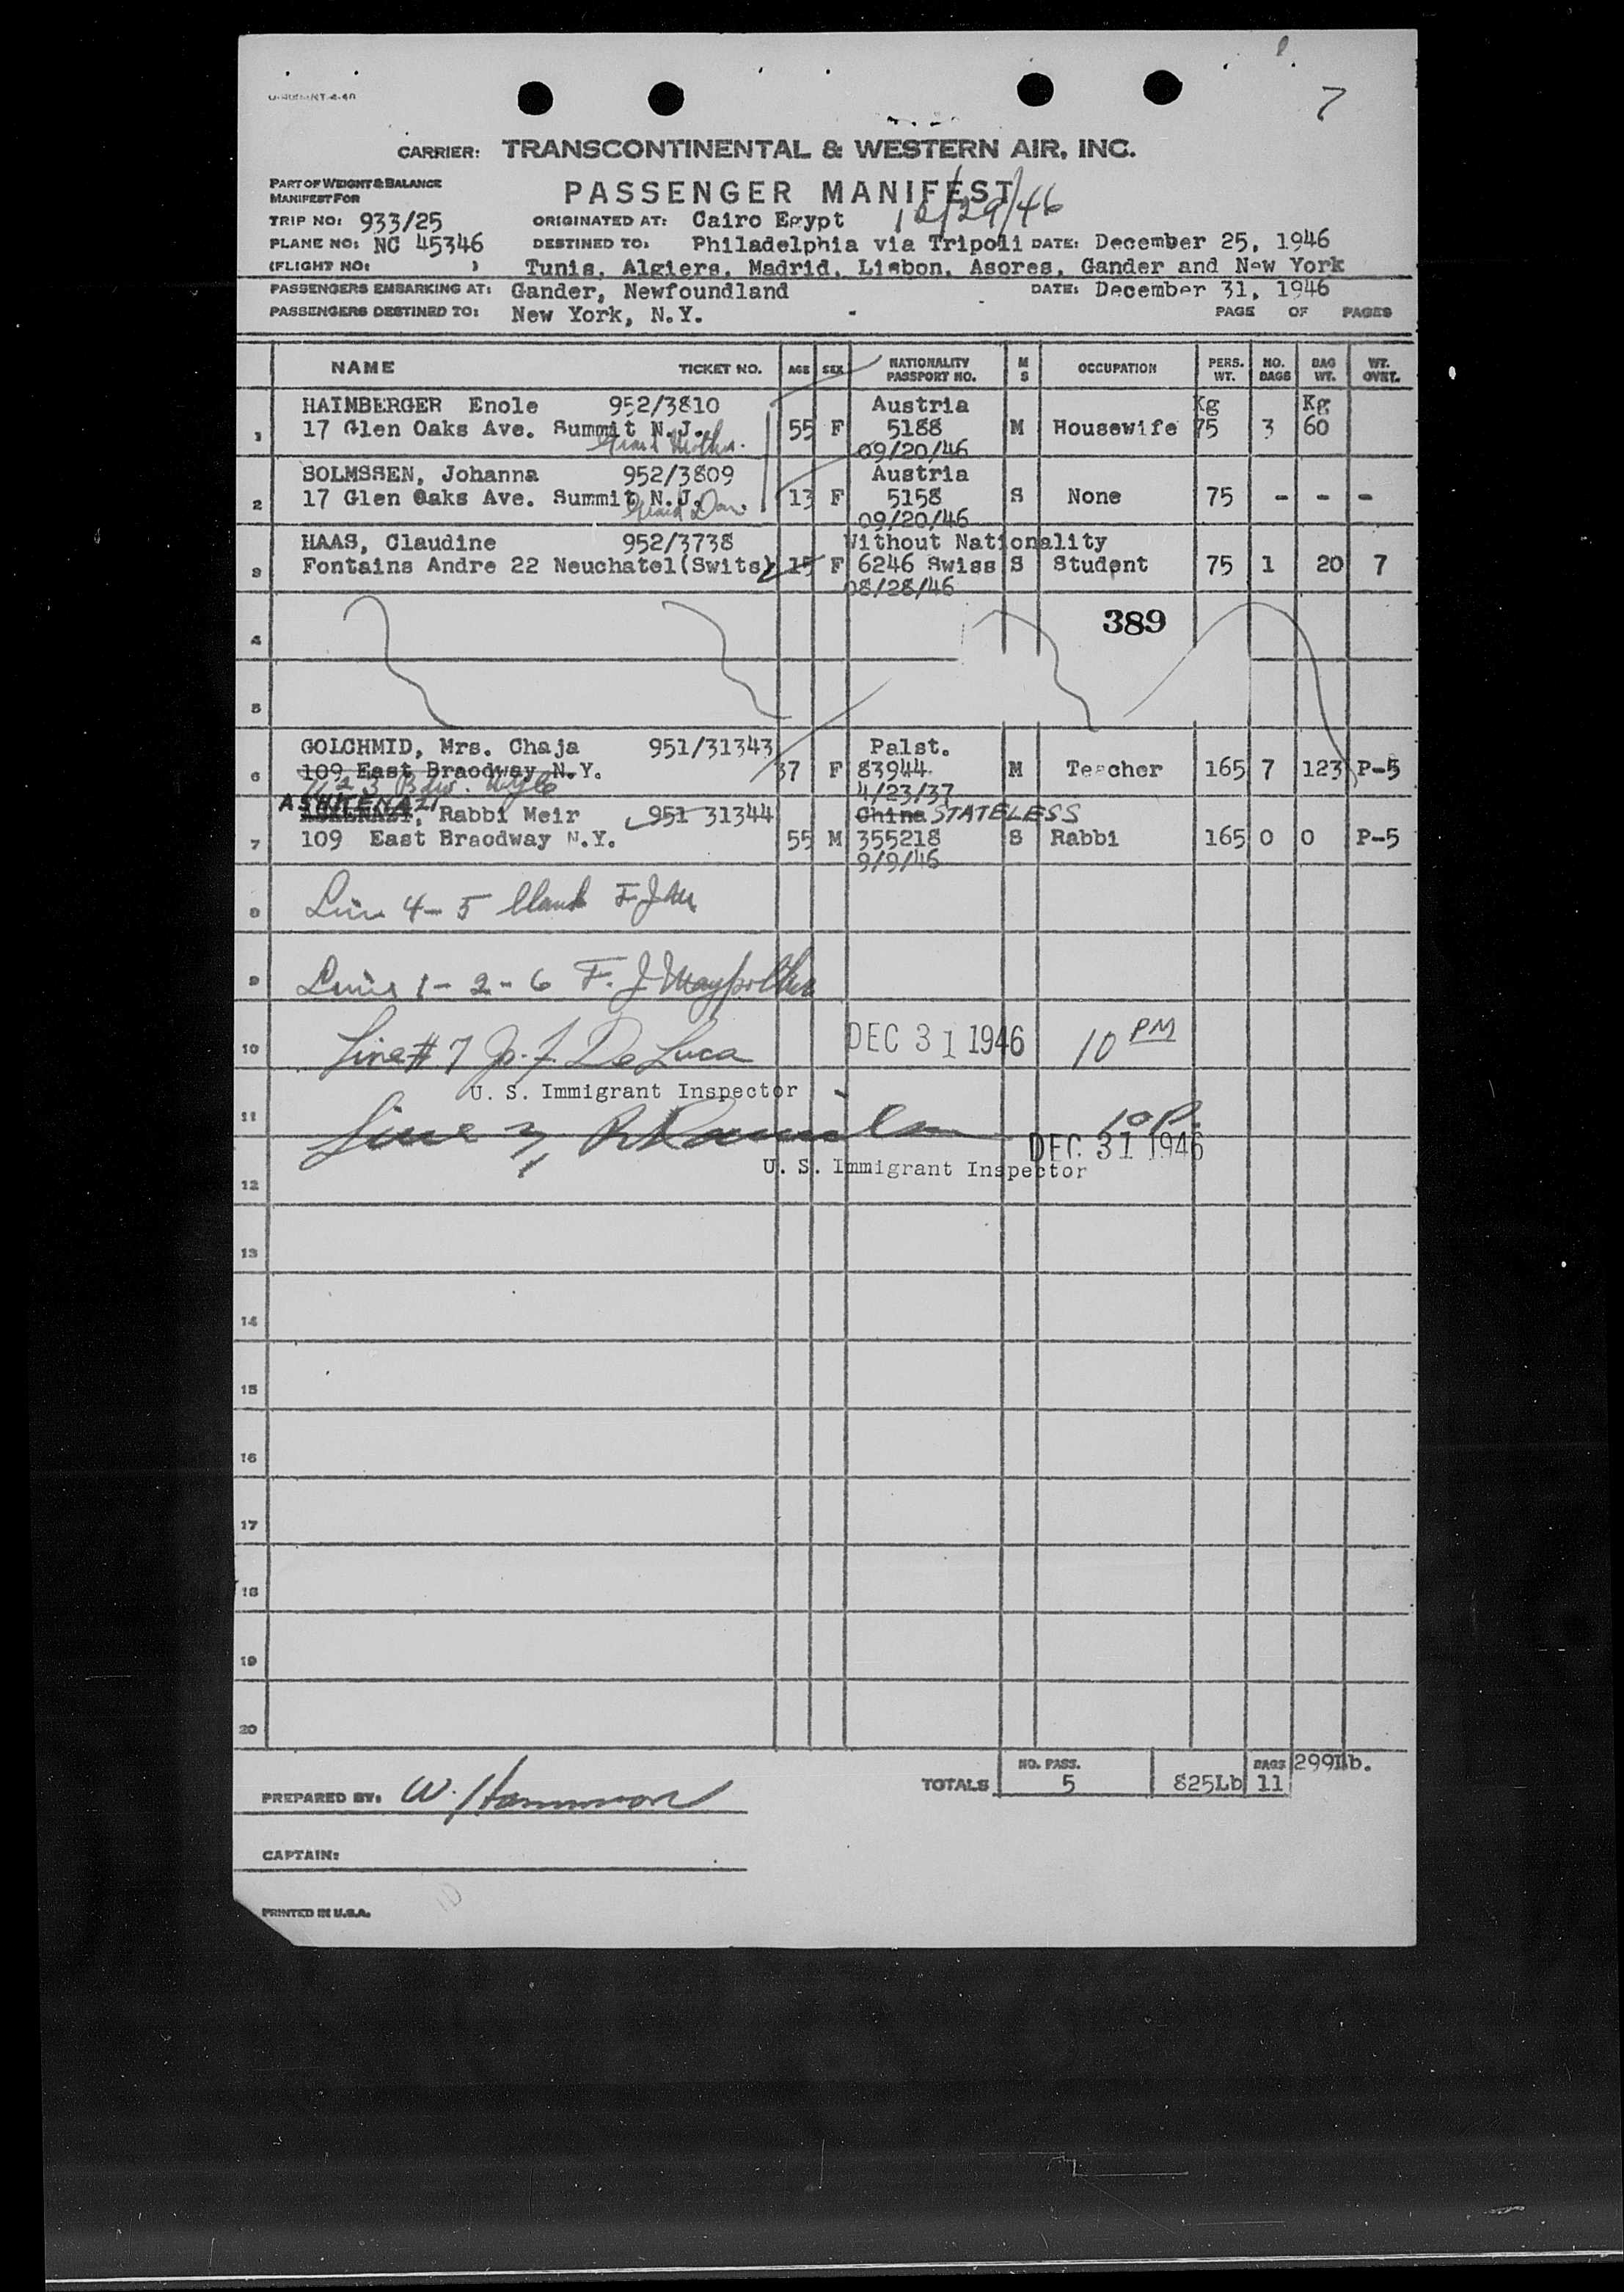 7
CARRIER: TRANSCONTINENTAL & WESTERN AIR, INC.
PART OF WEIGHT & BALANCE
MANIFEST FOR
PASSENGER MANIFEST
12/29/46
TRIP NO: 933/25 ORIGINATED AT: Cairo Egypt
PLANE NO: NC 45346 DESTINED TO: Philadelphia via Tripoli DATE: December 25, 1946
(FLIGHT NO: ) Tunis, Algiers, Madrid, Lisbon, Asores, Gander and New York
PASSENGERS EMBARKING AT: Gander, Newfoundland DATE: December 31, 1946
PASSENGERS DESTINED TO: New York, N.Y. PAGE OF PAGES
NAME TICKET NO. AGE SEX NATIONALITY PASSPORT NO. M S OCCUPATION PERS. WT. NO. BAGS BAG WT. WT. OVRT.
HAIMBERGER Enole 952/3810 Austria Kg Kg
1 17 Glen Oaks Ave. Summit N.J. 55 F 5188 M Housewife 75 3 60
Grand Mother. 09/20/46
SOLMSSEN, Johanna 952/3809 Austria
2 17 Glen Oaks Ave. Summit N.J. 13 F 5158 S None 75 - - -
Grand Dau. 09/20/46
HAAS, Claudine 952/3738 Without Nationality
3 Fontains Andre 22 Neuchatel(Swits) 15 F 6246 Swiss S Student 75 1 20 7
08/28/46
389
4
5
GOLCHMID, Mrs. Chaja 951/31343 Palst.
6 109 East Braodway N.Y. 37 F 83944 M Teacher 165 7 123 P-5
4/23/37
ASHKENAZI
, Rabbi Meir 951 31344 China STATELESS
7 109 East Braodway N.Y. 55 M 355218 S Rabbi 165 0 0 P-5
9/9/46
8 Line 4-5 blank F J M
9 Lines 1-2-6 F. J.
10 Line # 7 Jo. F. De Luca DEC 31 1946 10 PM
U. S. Immigrant Inspector
11 Line 3, 10 P.
DEC 31 1946
U. S. Immigrant Inspector
12
13
14
15
16
17
18
19
20
TOTALS NO. PASS. 5 825Lb BAGS 11 299Lb.
PREPARED BY: W. Hammon
CAPTAIN:
PRINTED IN U.S.A.